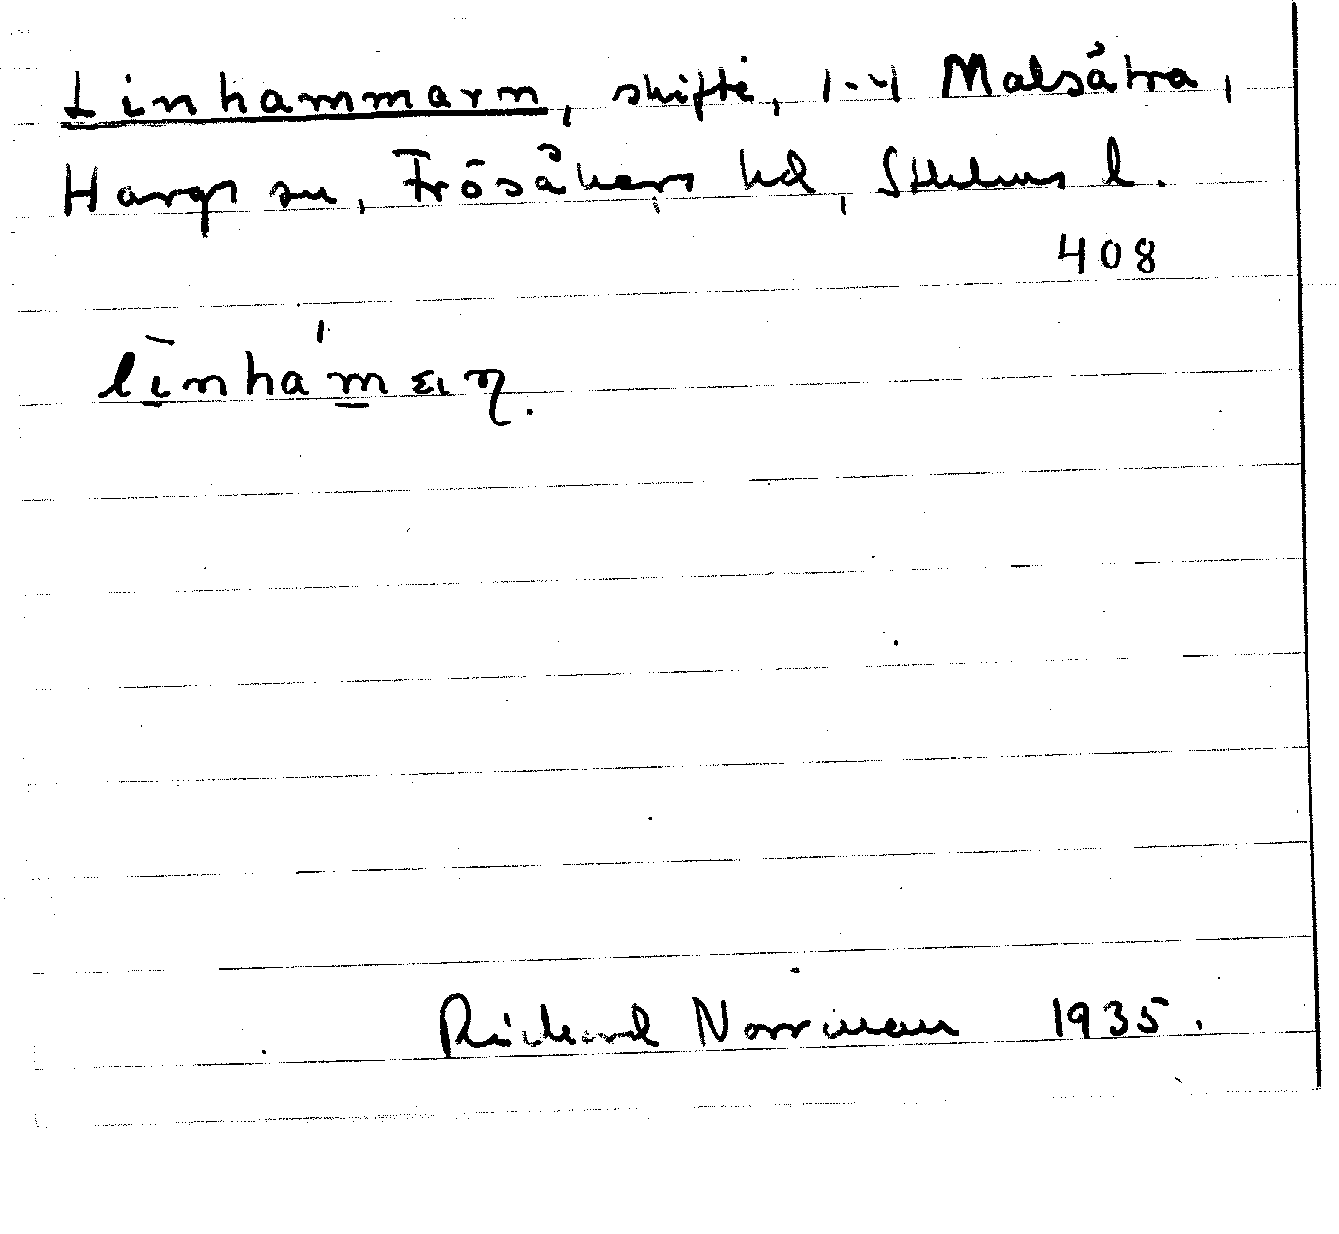 Linhammarn, skifte, 1-4 Malsätra,
Hargs sn, Frösåkers hd, Sthlms l.
408
Richard Norrman 1935.